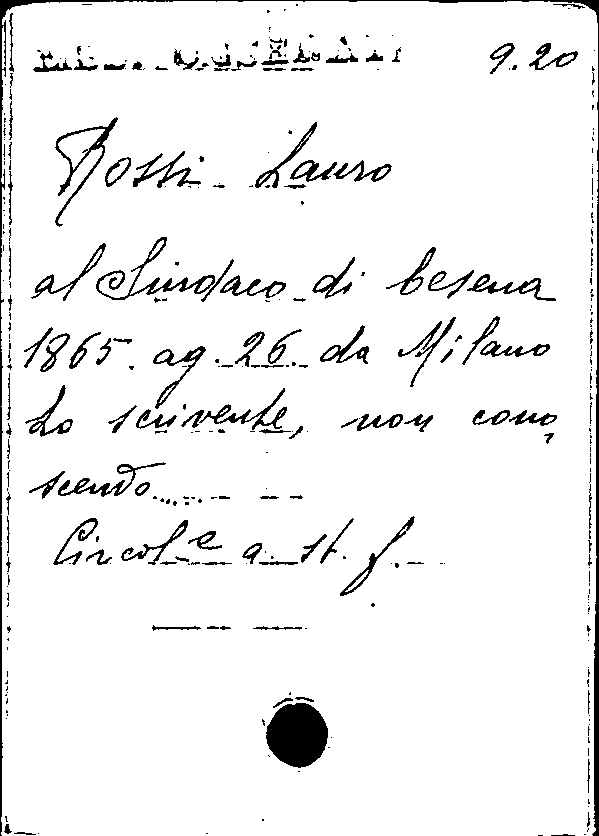 9.20
Rossi Lauro
al Sindaco di Cesena
1865. ag. 26. da Milano
Lo scrivente, non cono,
scendo......
Circol.e a. st. f.